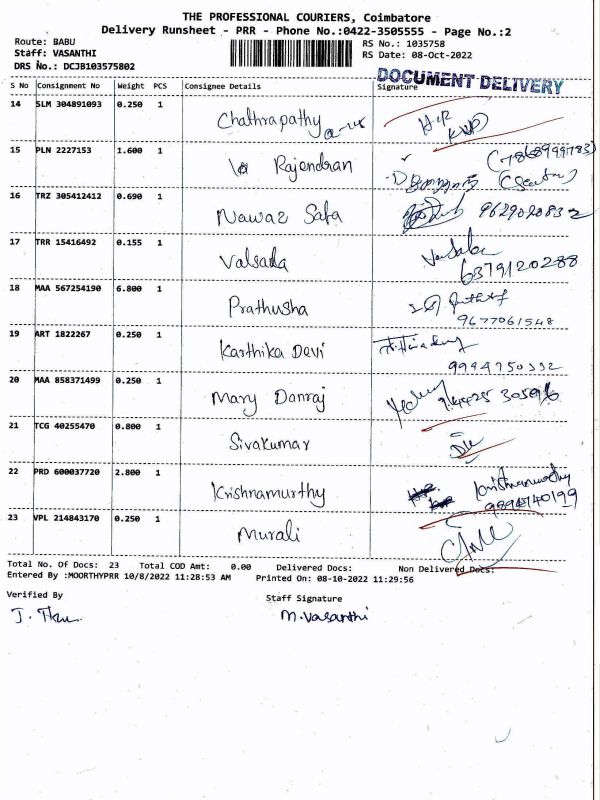 THE PROFESSIONAL COURIERS, Coimbatore
Delivery Runsheet - PRR - Phone No.:0422-3505555 - Page No.:2
Route: BABU
Staff: VASANTHI
DRS No.: DCJB103575802
RS No.: 1035758
RS Date: 08-Oct-2022
DOCUMENT DELIVERY
S No Consignment No Weight PCS Consignee Details Signature
14 SLM 304891093 0.250 1 Chathrapathy
15 PLN 2227153 1.600 1 Rajendran
16 TRZ 305412412 0.690 1 Nawaz Safa
17 TRR 15416492 0.155 1 Valsada
6379120288
18 MAA 567254190 6.800 1 Prathusha
9677061548
19 ART 1822267 0.250 1 Karthika Devi
9994750332
20 MAA 858371499 0.250 1 Mary Danraj
21 TCG 40255470 0.800 1 Sivakumar
22 PRD 600037720 2.800 1 Krishnamurthy Krishnamurthy
23 VPL 214843170 0.250 1 Murali
Total No. Of Docs: 23 Total COD Amt: 0.00 Delivered Docs: Non Delivered Docs:
Entered By :MOORTHYPRR 10/8/2022 11:28:53 AM Printed On: 08-10-2022 11:29:56
Verified By
Staff Signature
M.Vasanthi